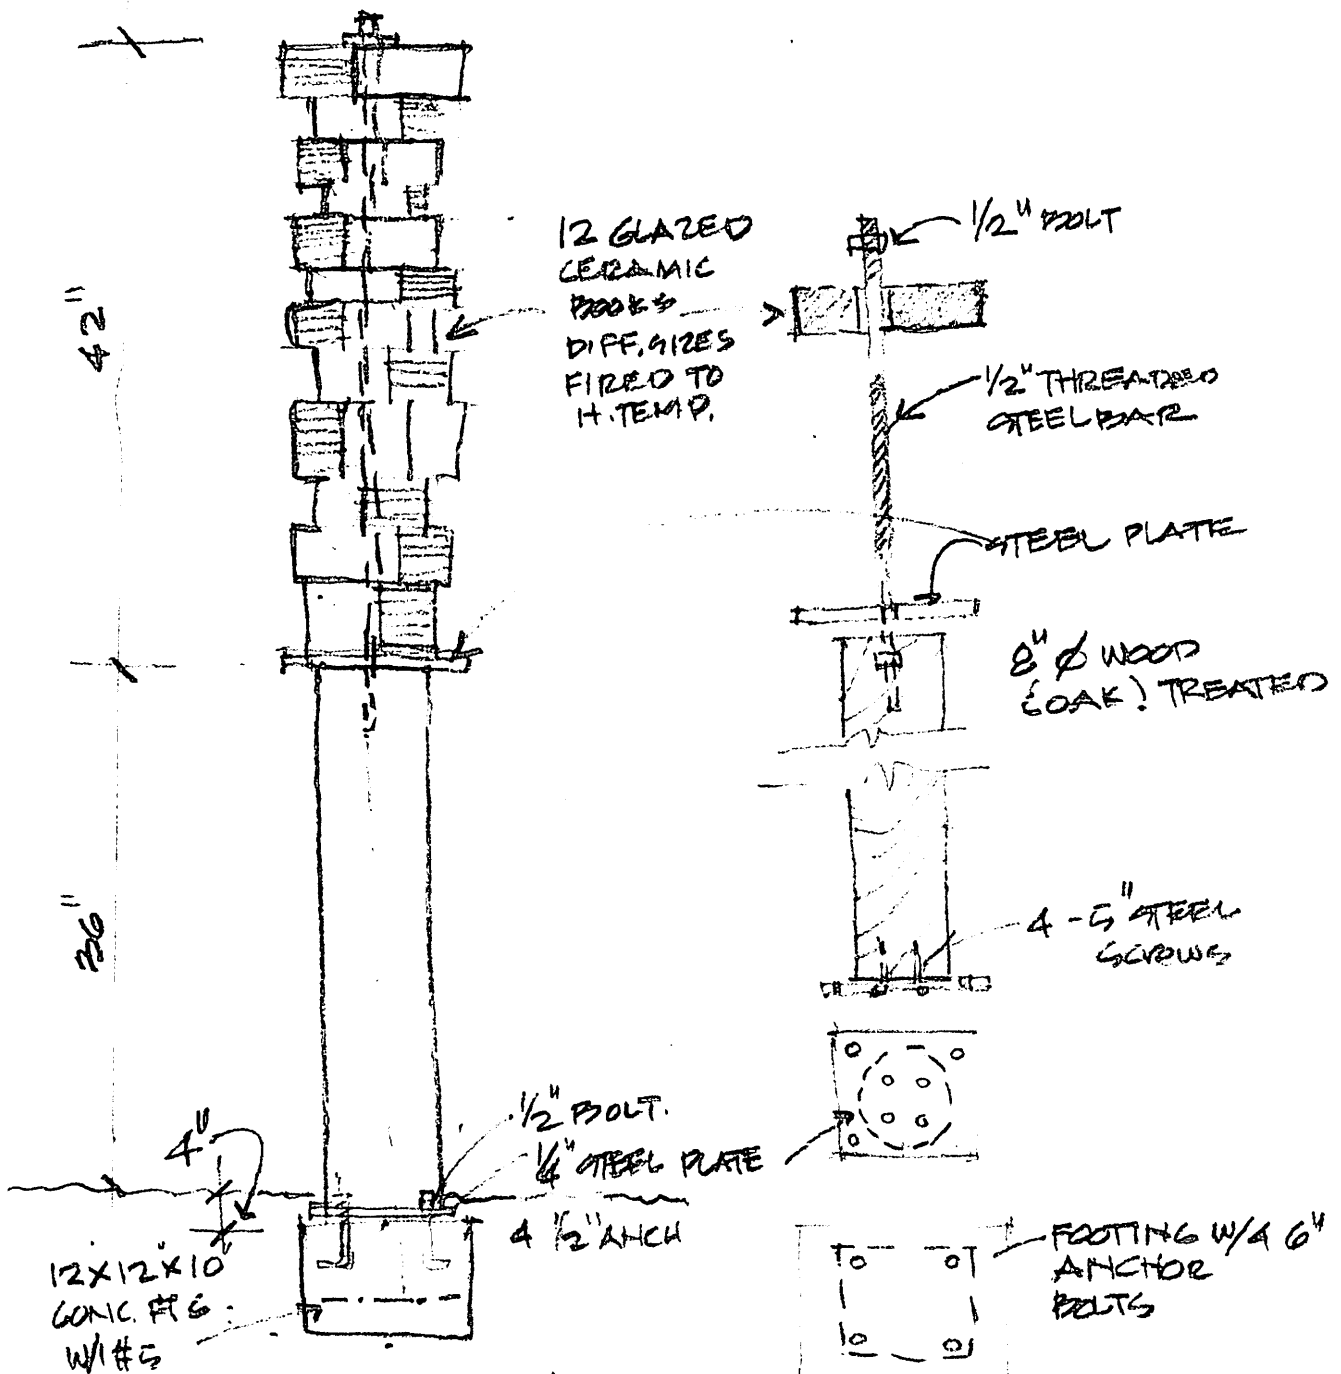 42"
12 GLAZED
CERAMIC
BOOKS
DIFF. SIZES
FIRED TO
H. TEMP.
1/2" BOLT
1/2" THREADED
STEEL BAR
STEEL PLATE
8" Ø WOOD
(OAK) TREATED
36"
4 - 5" STEEL
SCROWS
4"
1/2" BOLT.
1/4" STEEL PLATE
4 1/2" ANCH
12X12X10
CONC. FTG.
W/1#5
FOOTING W/4 6"
ANCHOR
BOLTS